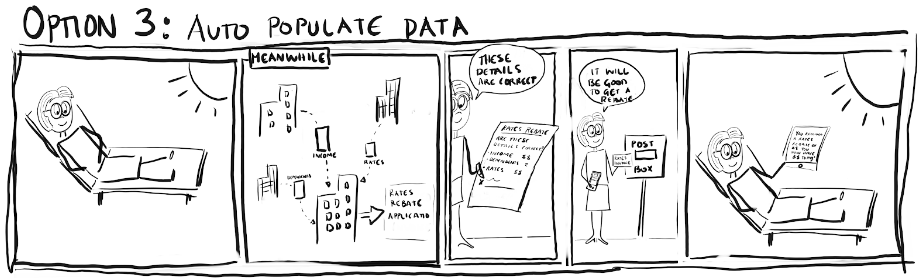 OPTION 3: AUTO POPULATE DATA
MEANWHILE
INCOME
RATES
DEPENDENTS
RATES
REBATE
APPLICATIO
THESE
DETAILS
ARE CORRECT
RATES REBATE
ARE THESE
DETAILS CORRECT
INCOME $$
DEPENDENTS 2
RATES $$
IT WILL
BE GOOD
TO GET A
REBATE
RATES
REBATE
POST
BOX